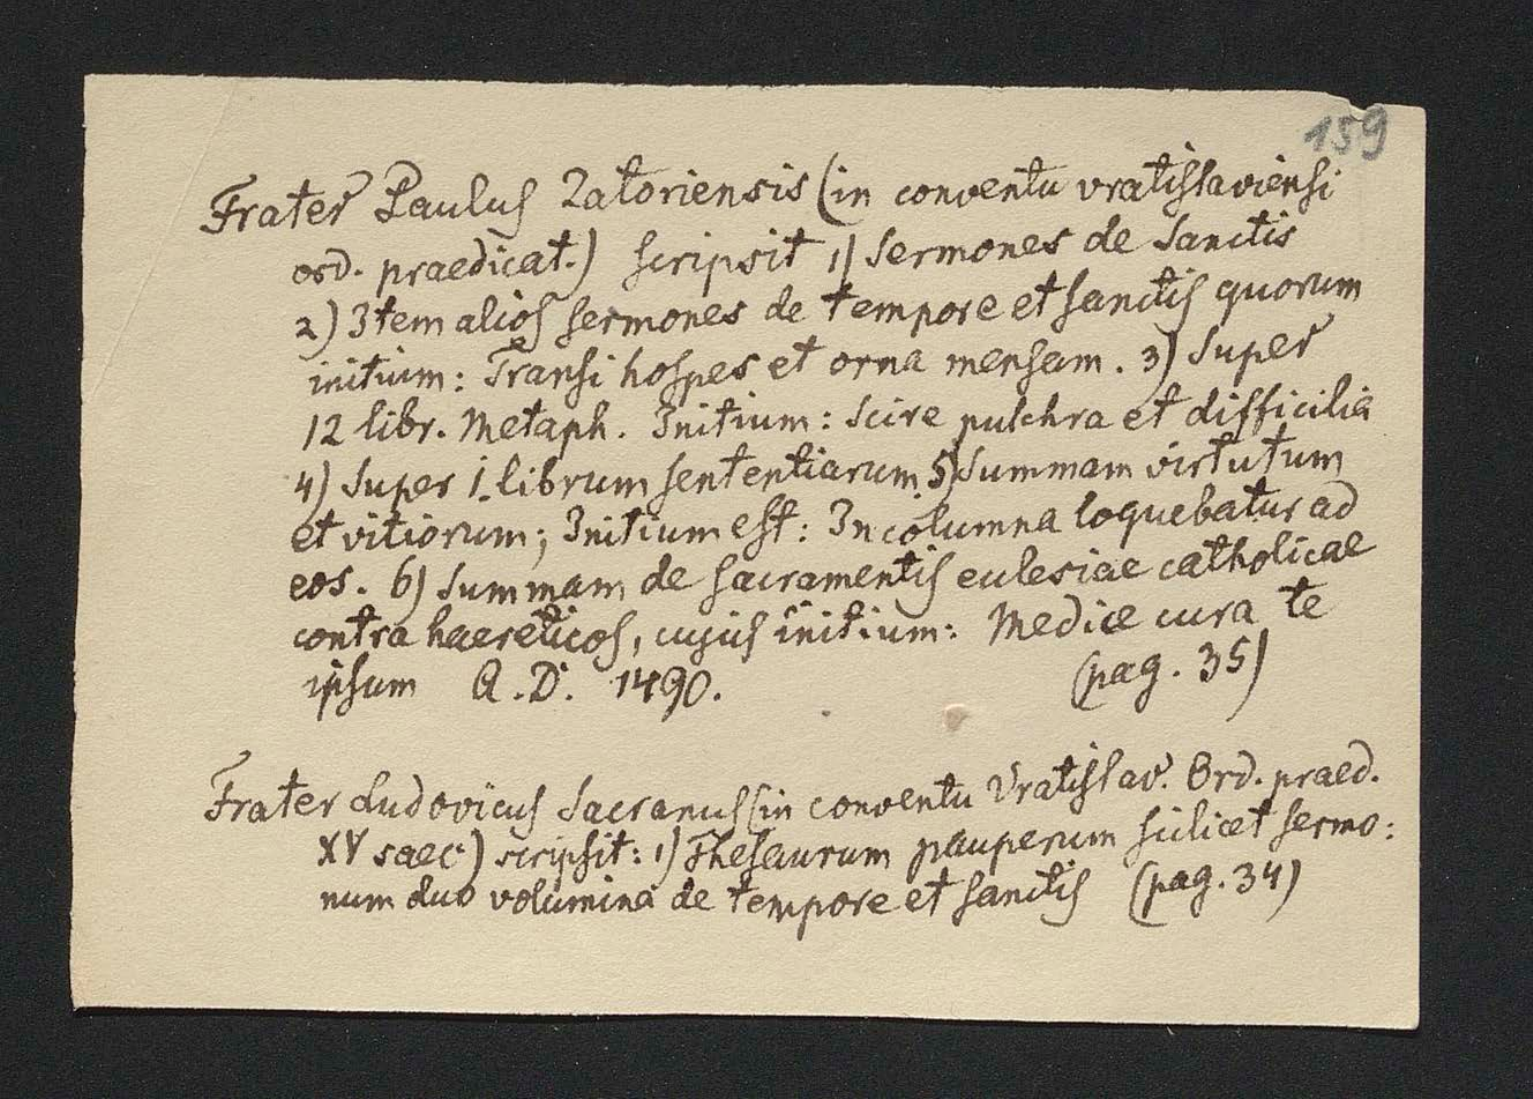 159
Frater Paulus Zatoriensis (in conventu vratislaviensi
ord. praedicat.) scripsit 1) Sermones de Sanctis
2) Item alios sermones de tempore et sanctis quorum
initium: Transi hospes et orna mensam. 3) Super
12 libr. Metaph. Initium: Scire pulchra et difficilia
4) Super 1. librum sententiarum 5) Summam virtutum
et vitiorum; Initium est: In columna loquebatur ad
eos. 6) Summam de sacramentis eclesiae catholicae
contra haereticos, cujus initium: Medice cura te
ipsum A.D. 1490. (pag. 35)
Frater Ludovicus Sacranus (in conventu Vratislav. Ord. praed.
XV saec.) scripsit: 1) Thesaurum pauperum scilicet sermo:
num duo volumina de tempore et sanctis (pag. 34)